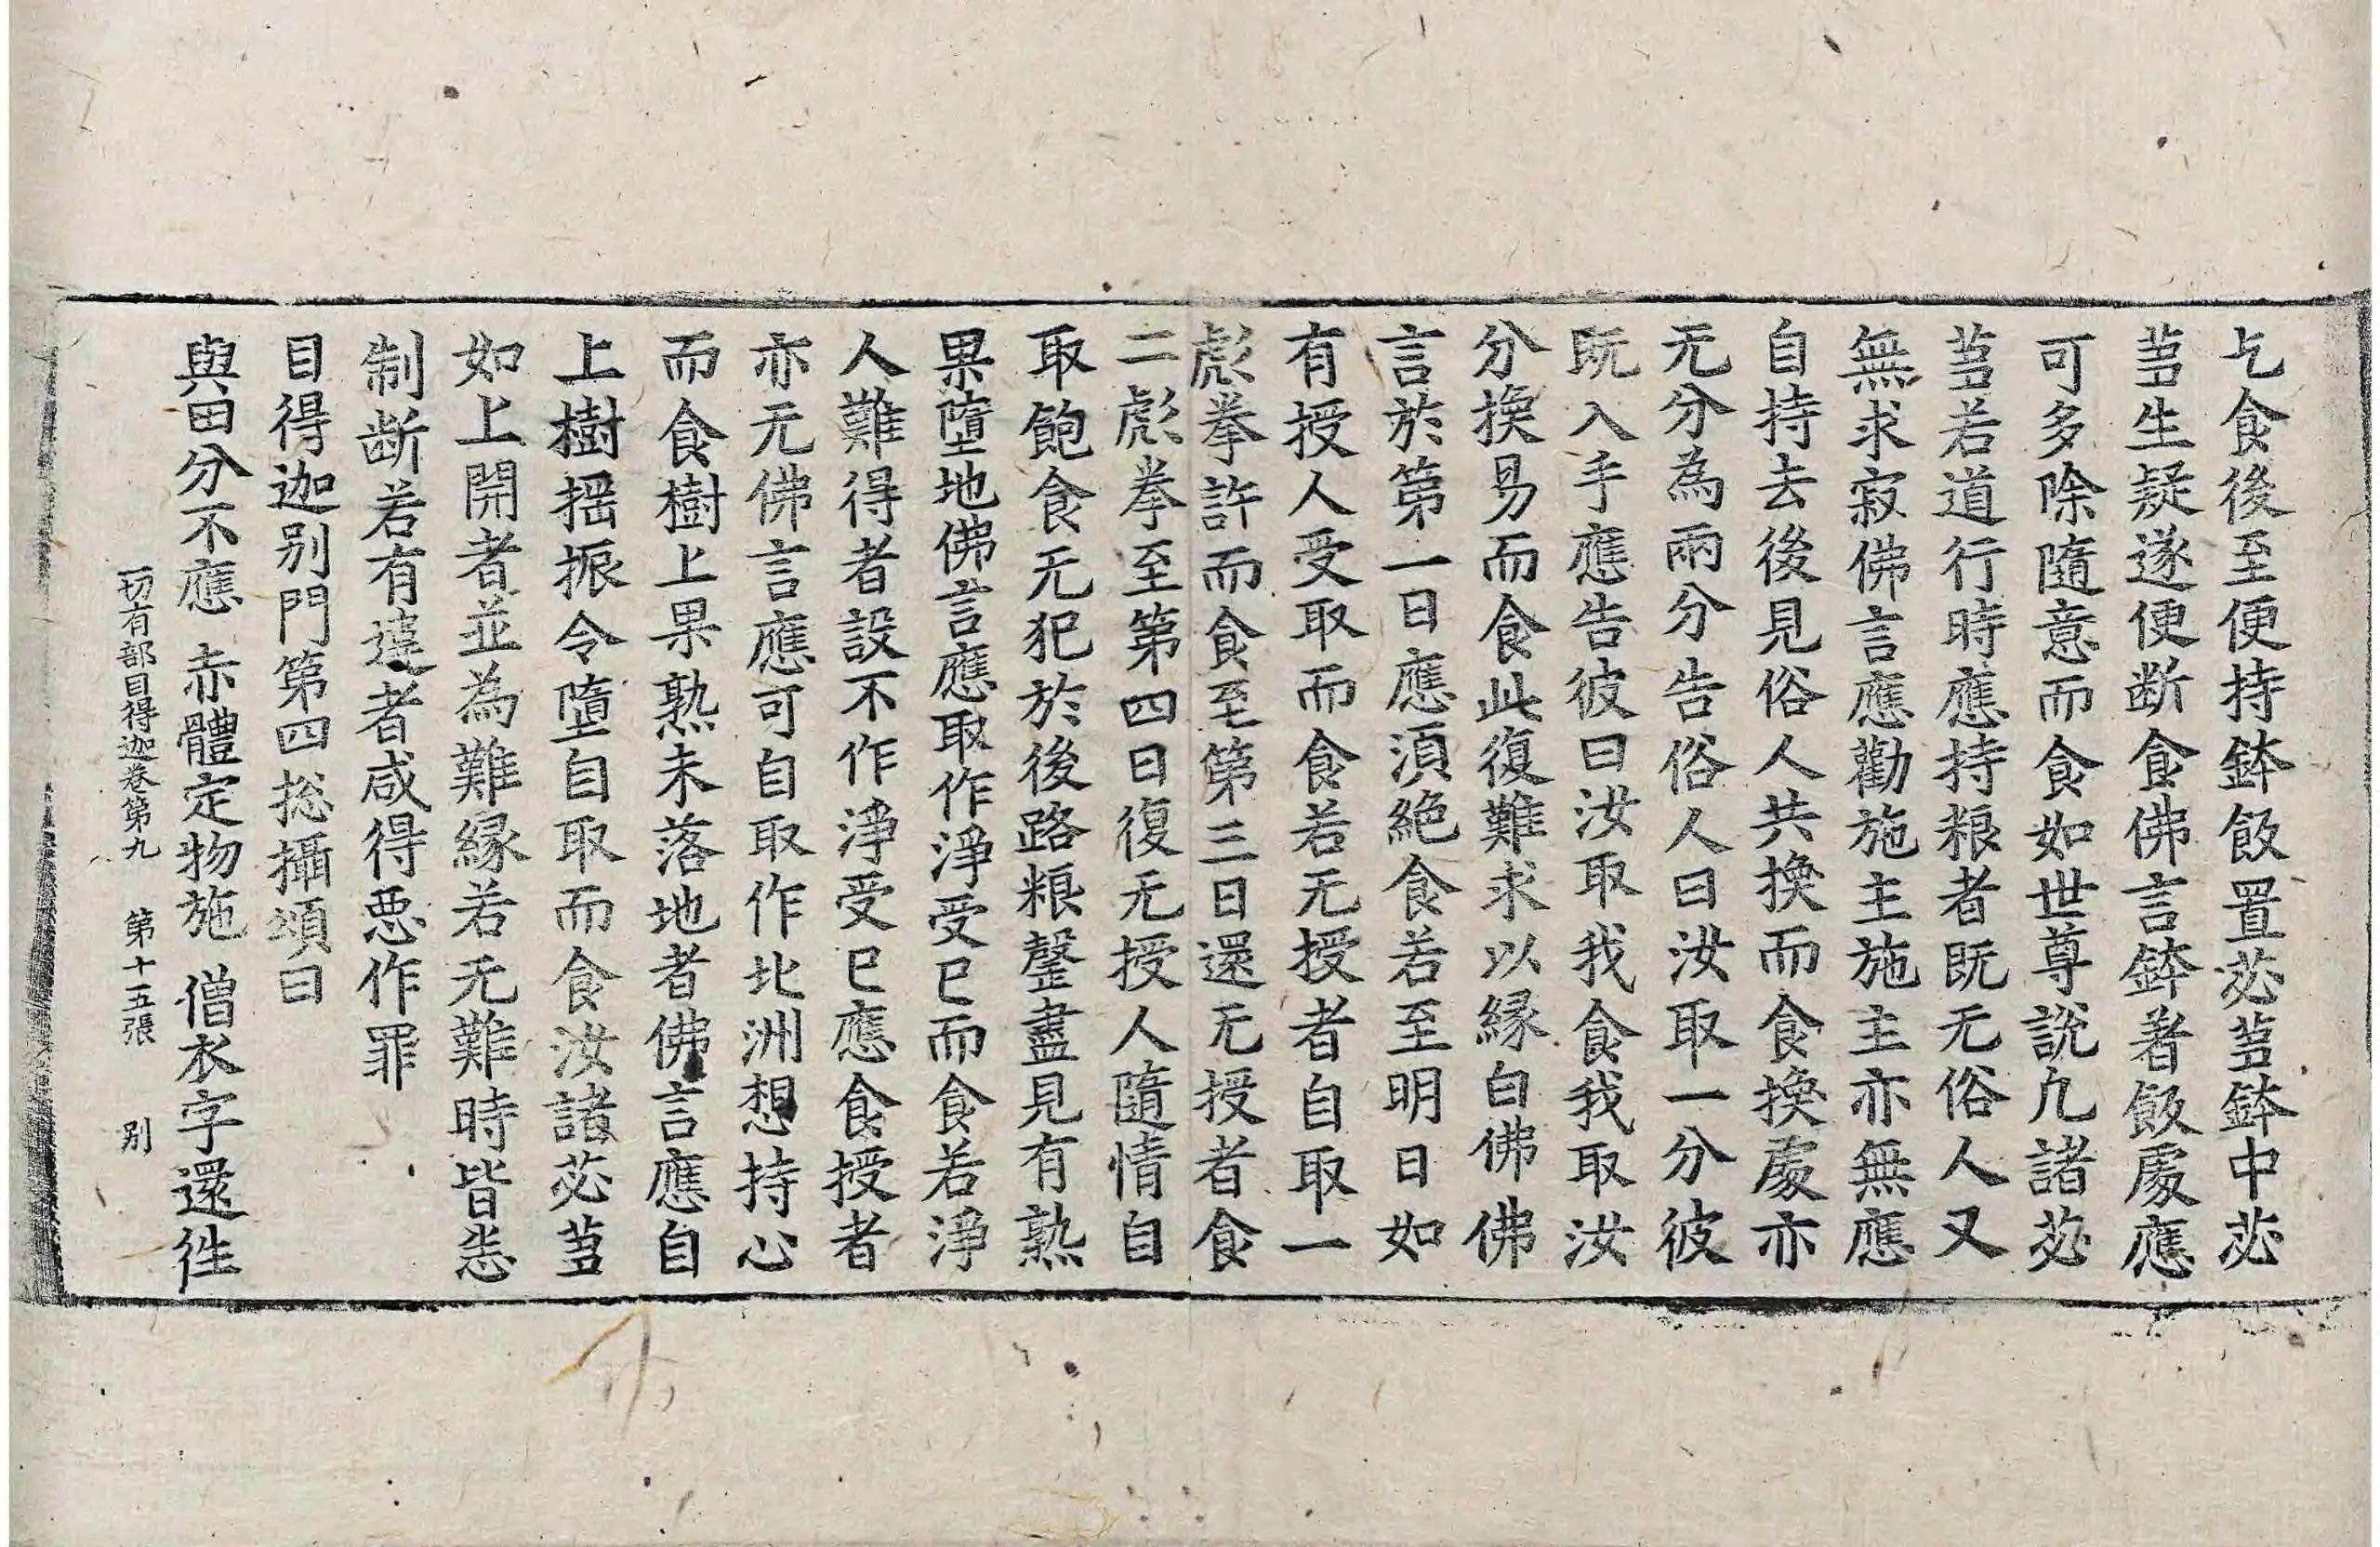 乞食後至便持鉢飯置苾芻鉢中苾
芻生疑遂便断食佛言鉢著飯處應
可多除隨意而食如世尊說凢諸苾
芻若道行時應持粮者既无俗人又
無求寂佛言應勸施主施主亦無應
自持去後見俗人共換而食換處亦
无分為兩分告俗人曰汝取一分彼
既入手應告彼曰汝取我食我取汝
分換易而食此復難求以縁白佛佛
言於第一日應湏絶食若至明日如
有授人受取而食若无授者自取一
彪拳許而食至第三日還无授者食
二彪拳至第四日復无授人隨情自
取飽食无犯於後路粮罄盡見有熟
果墮地佛言應取作淨受已而食若淨
人難得者設不作淨受已應食授者
亦无佛言應可自取作北洲想持心
而食樹上果熟未落地者佛言應自
上樹揺振令墮自取而食汝諸苾芻
如上開者並為難縁若无難時皆悉
制断若有違者咸得惡作罪
目得迦别門第四揔攝頌曰
與田分不應　赤體定物施　僧衣字還徃
一切有部目得迦卷第九　第十五張　别